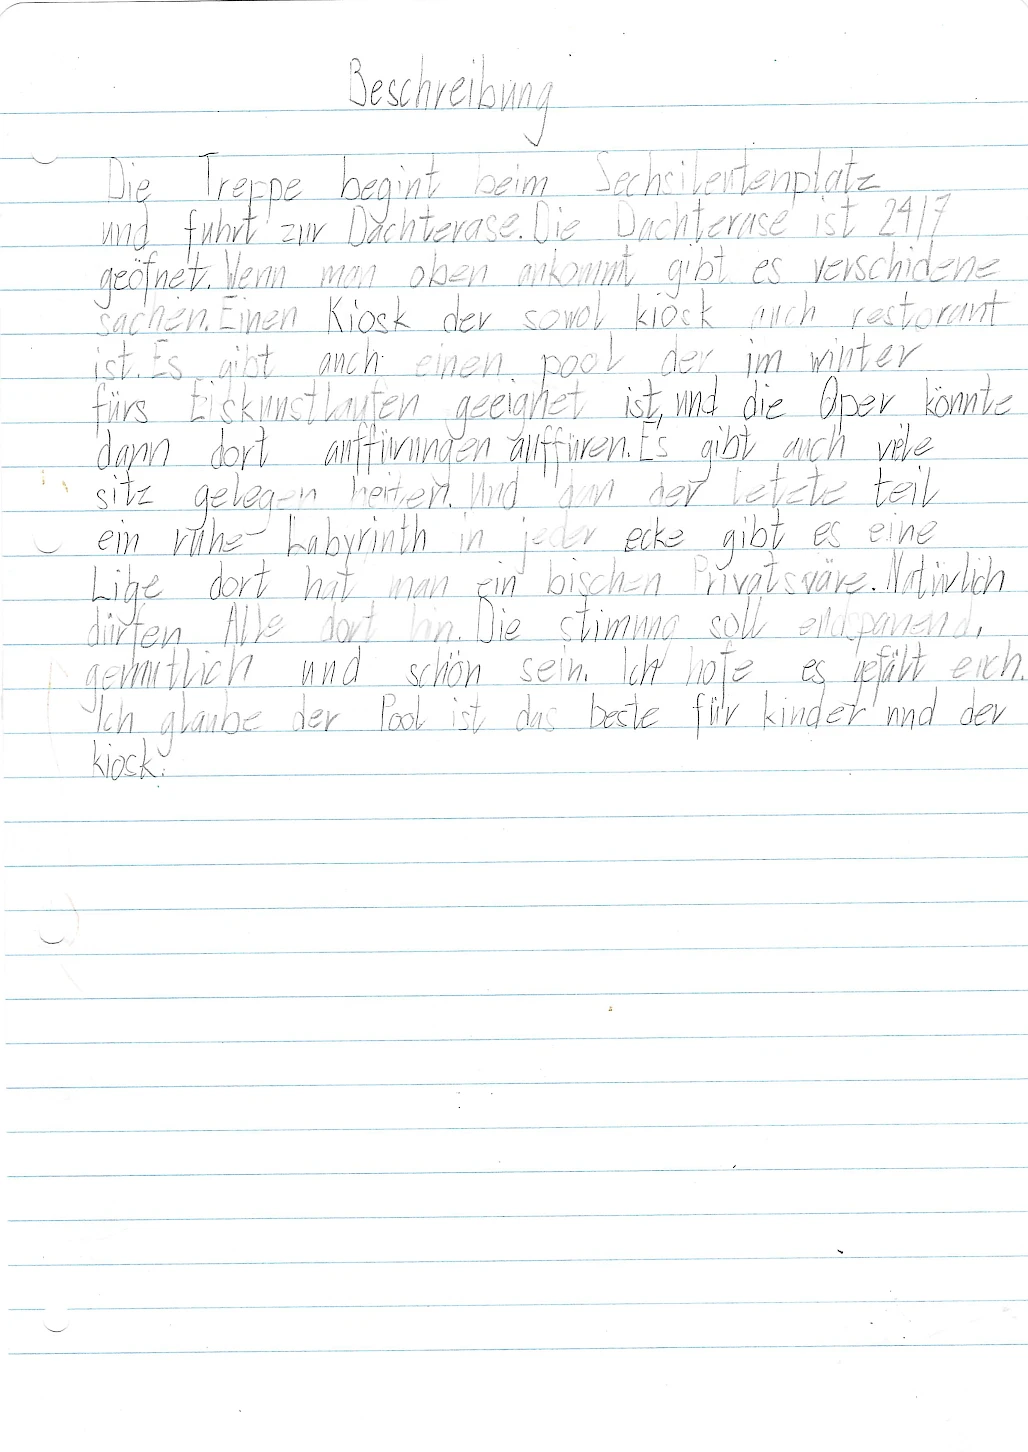 Beschreibung
Die Treppe begint beim Sechsileutenplatz
und fuhrt zur Dachterase. Die Dachterase ist 24/7
geöfnet. Wenn man oben ankommt gibt es verschidene
sachen. Einen Kiosk der sowol kiosk auch restorant
ist. Es gibt auch einen pool der im winter
fürs Eiskunstlaufen geeignet ist, und die Oper könnte
dann dort auffürungen auffüren. Es gibt auch viele
sitz gelegen heiten. Und dan der letzte teil
ein ruhe- Labyrinth in jeder ecke gibt es eine
Lige dort hat man ein bischen Privatsväre. Natürlich
dürfen Alle dort hin. Die stimung soll endspanend,
gemütlich und schön sein. Ich hofe es gefält eich.
Ich glaube der Pool ist das beste für kinder und der
kiosk.